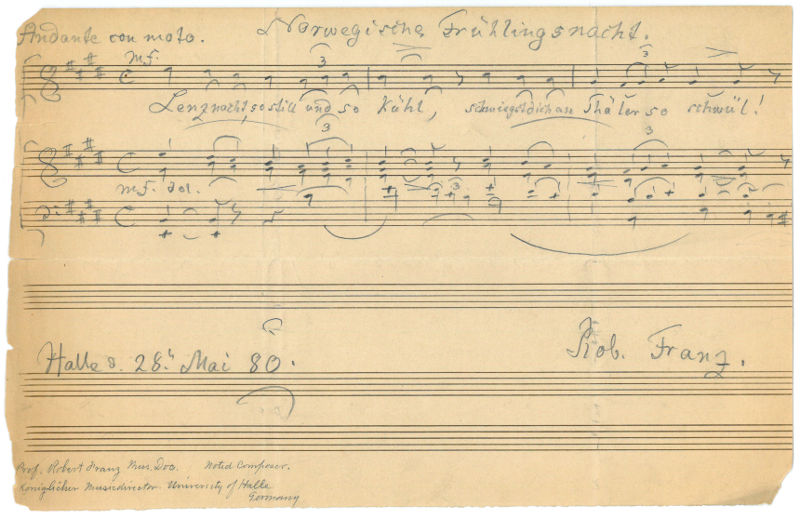 Norwegische Frühlingsnacht.
Andante con moto.
m.f.
3
3
Lenznacht, so still und so Kühl, schmiegst dich an Thäler so schwül!
3
3
m.f. dol.
3
Halle d. 28. Mai 80.
Rob. Franz.
Prof. Robert Franz Mus. Doc. Noted Composer.
Königlicher Musicdirector. University of Halle
Germany